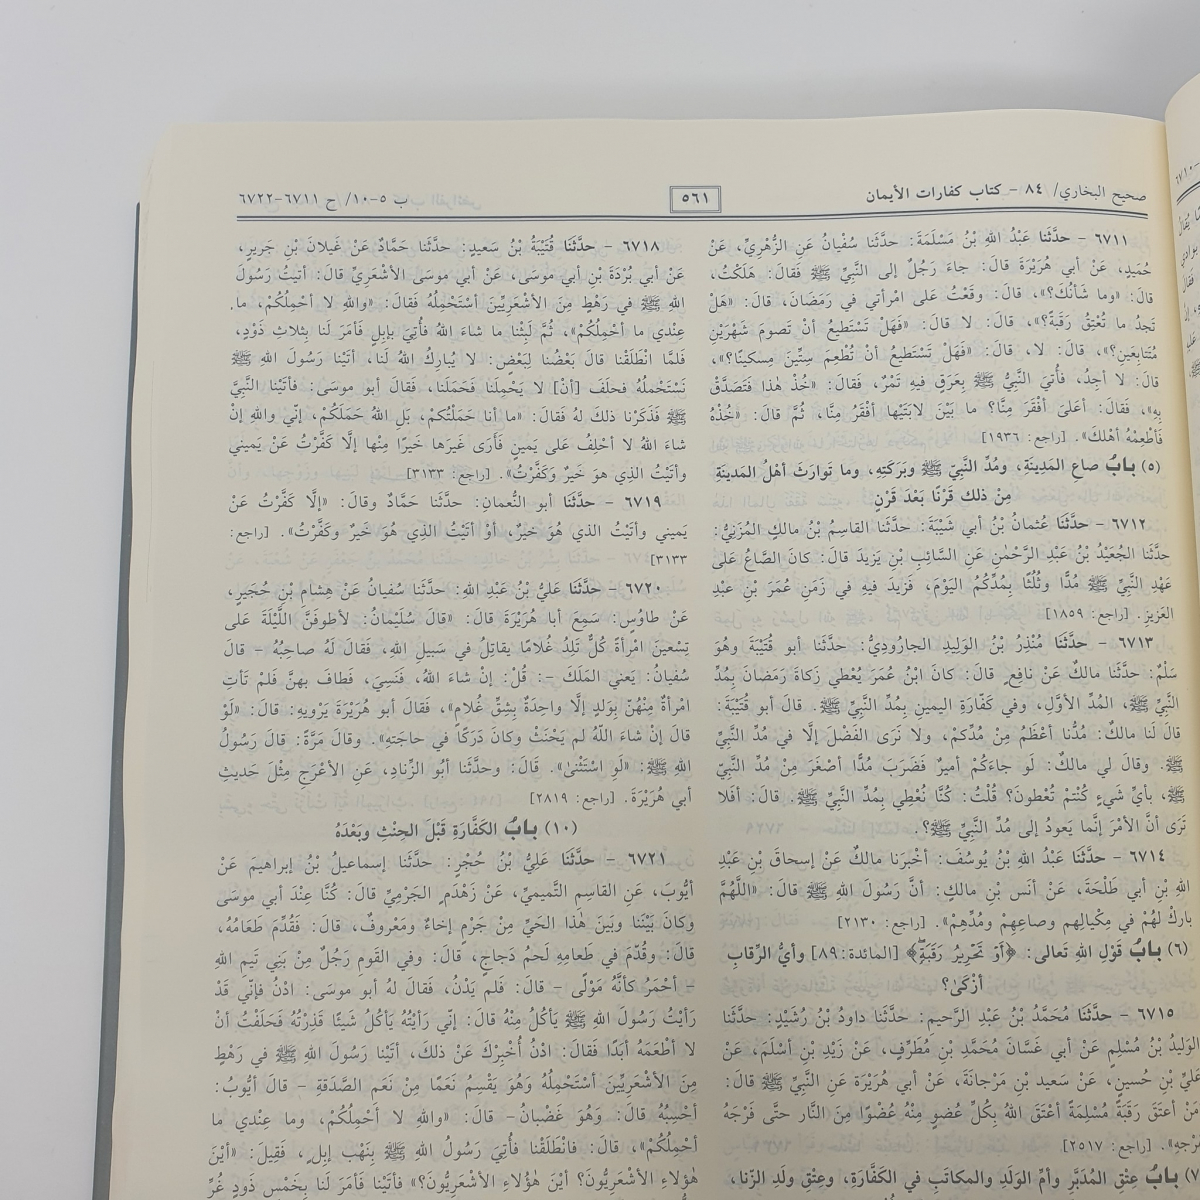 صحيح البخاري/ ٨٤ - كتاب كفارات الأيمان
٥٦١
ب ٥-١٠/ ح ٦٧١١-٦٧٢٢
٦٧١١ - حدَّثنا عَبْدُ اللهِ بْنُ مَسْلَمَةَ: حدَّثنا سُفْيانُ عَنِ الزُّهْرِيِّ، عَنْ
حُمَيدٍ، عَنْ أبي هُرَيْرَةَ قالَ: جاءَ رَجُلٌ إلى النَّبيِّ ﷺ فَقالَ: هَلَكْتُ،
قالَ: «وما شَأنُكَ؟»، قالَ: وقَعْتُ عَلى امْرأتي في رَمَضَانَ، قالَ: «هَلْ
تَجدُ ما تُعْتِقُ رَقَبةً؟»، قالَ: لا قالَ: «فَهَلْ تَسْتَطيعُ أنْ تَصومَ شَهْرَيْنِ
مُتَتابعَينِ؟»، قالَ: لا، قالَ: «فَهَلْ تَسْتَطيعُ أنْ تُطْعِمَ سِتِّينَ مِسكينًا؟»،
قالَ: لا أجِدُ، فأُتيَ النَّبيُّ ﷺ بِعَرَقٍ فيهِ تَمْرٌ، فَقالَ: «خُذْ هٰذا فَتَصَدَّقْ
بِهِ»، فَقالَ: أعَلىَ أفْقَرَ مِنَّا؟ ما بَيْنَ لابَتَيْها أفْقَرُ مِنَّا، ثُمَّ قالَ: «خُذْهُ
فَأطْعِمْهُ أهْلكَ». [راجع: ١٩٣٦]
(٥) بابُ صاعِ المَدِينَةِ، ومُدِّ النَّبيِّ ﷺ وبَرَكَتِهِ، وما تَوارَثَ أهْلُ المَدينَةِ
مِنْ ذلكَ قَرْنًا بَعْدَ قَرْنٍ
٦٧١٢ - حدَّثنَا عُثمانُ بْنُ أبي شَيْبَةَ: حدَّثنا القاسِمُ بْنُ مالكٍ المُزَنِيُّ:
حدَّثنا الجُعَيْدُ بْنُ عَبْدِ الرَّحْمٰنِ عَنِ السَّائِبِ بْنِ يَزيدَ قالَ: كانَ الصَّاعُ عَلى
عَهْدِ النَّبيِّ ﷺ مُدًّا وثُلُثًا بِمُدِّكُمُ اليَوْمَ، فَزيدَ فيهِ في زَمَنِ عُمَرَ بْنِ عَبْدِ
العَزيزِ. [راجع: ١٨٥٩]
٦٧١٣ - حدَّثنَا مُنْذِرُ بْنُ الوَليدِ الجارُودِيُّ: حدَّثنا أبو قُتَيْبَةَ وهُوَ
سَلْمٌ: حدَّثنا مالكٌ عَنْ نافِعٍ قالَ: كانَ ابْنُ عُمَرَ يُعْطي زَكاةَ رَمَضانَ بِمُدِّ
النَّبيِّ ﷺ، المُدِّ الأوَّلِ، وفي كَفَّارَةِ اليمينِ بِمُدِّ النَّبيِّ ﷺ. قالَ أبو قُتَيْبَةَ:
قالَ لَنا مالكٌ: مُدُّنا أعْظَمُ مِنْ مُدِّكمْ، ولا نَرَى الفَضْلَ إلَّا في مُدِّ النَّبيِّ
ﷺ. وقالَ لي مالكٌ: لَو جاءَكُمْ أميرٌ فَضَرَبَ مُدًّا أصْغَرَ مِنْ مُدِّ النَّبيِّ
ﷺ، بأيِّ شَيءٍ كُنْتُمْ تُعْطونَ؟ قُلْتُ: كُنَّا نُعْطِي بِمُدِّ النَّبيِّ ﷺ. قالَ: أفَلا
تَرَى أنَّ الأمْرَ إنَّما يَعودُ إلى مُدِّ النَّبيِّ ﷺ؟.
٦٧١٤ - حدَّثنَا عَبْدُ اللهِ بْنُ يُوسُفَ: أخْبرَنا مالكٌ عَنْ إسحاقَ بْنِ عَبْدِ
اللهِ بْنِ أبي طَلْحَةَ، عَنْ أنَسِ بْنِ مالكٍ: أنَّ رَسُولَ اللهِ ﷺ قالَ: «اللَّهُمَّ
بارِكْ لهُمْ في مِكْيالِهِم وصاعِهِمْ ومُدِّهِمْ». [راجع: ٢١٣٠]
(٦) بابُ قَوْلِ اللهِ تَعالى: ﴿أَوْ تَحْرِيرُ رَقَبَةٍ﴾ [المائدة: ٨٩] وأيُّ الرِّقابِ
أزْكَىٰ؟
٦٧١٥ - حدَّثنَا مُحَمَّدُ بْنُ عَبْدِ الرَّحيم: حدَّثنا داودُ بْنُ رُشَيْدٍ: حدَّثنا
الوَليدُ بْنُ مُسْلِمٍ عَنْ أبي غَسَّانَ مُحَمَّدِ بْنِ مُطَرِّفٍ، عَنْ زَيْدِ بْنِ أسْلَمَ، عَنْ
عَليِّ بْنِ حُسينٍ، عَنْ سَعيدِ بْنِ مَرْجانَةَ، عَنْ أبي هُرَيْرَةَ عَنِ النَّبيِّ ﷺ قالَ:
مَنْ أعتَقَ رَقَبةً مُسْلِمَةً أعْتَقَ اللهُ بِكُلِّ عُضوٍ مِنْهُ عُضْوًا مِنَ النَّارِ حتَّى فَرْجَهُ
[راجع: ٢٥١٧]
بابُ عِتْقِ المُدَبَّرِ وأمِّ الوَلَدِ والمكاتَبِ في الكَفَّارَةِ، وعِتْقِ ولَدِ الزِّنا،
٦٧١٨ - حدَّثنَا قُتَيْبَةُ بْنُ سَعيدٍ: حدَّثنا حَمَّادٌ عَنْ غَيلانَ بْنِ جَريرٍ،
عَنْ أبي بُرْدَةَ بْنِ أبي موسَى، عَنْ أبي موسَى الأشْعَرِيِّ قالَ: أتَيتُ رَسُولَ
اللهِ ﷺ في رَهْطٍ مِنَ الأشْعَرِيِّينَ أسْتَحْمِلُهُ فَقالَ: «واللهِ لا أحْمِلُكُمْ، ما
عِنْدي ما أحْمِلُكُمْ»، ثُمَّ لَبِثْنا ما شاءَ اللهُ فأُتِيَ بإبلٍ فَأمَرَ لَنا بِثلاثِ ذَوْدٍ،
فَلمَّا انْطَلَقْنا قالَ بَعْضُنا لِبَعْضٍ: لا يُبارِكُ اللهُ لَنا، أتَيْنا رَسُولَ اللهِ ﷺ
نَسْتَحْمِلُهُ فحلَفَ [أنْ] لا يَحْمِلَنا فَحَمَلَنا، فَقالَ أبو موسَى: فأتَيْنا النَّبيَّ
ﷺ فَذَكَرْنا ذلكَ لهُ فَقالَ: «ما أنا حَمَلْتُكُمْ، بَلِ اللهُ حَمَلَكُمْ، إنّي واللهِ إنْ
شاءَ اللهُ لا أحْلِفُ عَلى يَمينٍ فَأرَى غَيرَها خَيرًا مِنْها إلَّا كَفَّرْتُ عَنْ يَميني
وأتَيْتُ الذِي هوَ خَيرٌ وَكَفَّرْتُ». [راجع: ٣١٣٣]
٦٧١٩ - حدَّثنَا أبو النُّعمانِ: حدَّثنا حَمَّادٌ وقالَ: «إلَّا كَفَّرْتُ عَنْ
يَميني وأتَيْتُ الذي هُوَ خيرٌ، أوْ أتَيْتُ الذِي هُوَ خَيرٌ وكَفَّرْتُ». [راجع:
٣١٣٣]
٦٧٢٠ - حدَّثنَا عَليُّ بْنُ عَبْدِ اللهِ: حدَّثنا سُفيانُ عَنْ هِشامِ بْنِ حُجَيرٍ،
عَنْ طاوُسٍ: سَمِعَ أبا هُرَيْرَةَ قالَ: «قالَ سُلَيْمانُ: لأطوفَنَّ اللَّيْلَةَ عَلى
تِسْعينَ امْرأةً كُلٌّ تَلِدُ غُلامًا يقاتِلُ في سَبيلِ اللهِ، فَقالَ لَهُ صاحِبُهُ - قالَ
سُفيانُ: يَعني المَلَكَ -: قُلْ: إنْ شاءَ اللهُ، فَنَسِيَ، فَطافَ بِهنَّ فَلمْ تَأتِ
امْرأةٌ مِنْهُنّ بِوَلدٍ إلَّا واحِدَةٌ بِشِقِّ غُلامٍ»، فَقالَ أبو هُرَيْرَةَ يَرْويهِ: قالَ: «لَوْ
قالَ إنْ شاءَ اللَهُ لم يَحْنَثْ وكانَ دَرَكًا في حاجَتهِ». وقالَ مَرَّةً: قالَ رَسُولُ
اللهِ ﷺ: «لَوِ اسْتَثْنىٰ». قالَ: وحدَّثنا أبُو الزِّنادِ، عَنِ الأعْرَجِ مِثْلَ حَديثِ
أبي هُرَيْرَةَ. [راجع: ٢٨١٩]
(١٠) بابُ الكَفَّارَةِ قَبْلَ الحِنْثِ وبَعْدَهُ
٦٧٢١ - حدَّثنَا عَليُّ بْنُ حُجْرٍ: حدَّثنا إسماعيلُ بْنُ إبراهيمَ عَنْ
أيُّوبَ، عَنِ القاسِمِ التَّميميِّ، عَنْ زَهْدَمٍ الجَرْمِيِّ قالَ: كُنَّا عِنْدَ أبي موسَى
وكانَ بَيْنَنا وبَينَ هٰذا الحَيِّ مِنْ جَرْمٍ إخاءٌ ومَعْروفٌ، قالَ: فَقُدِّمَ طَعَامُهُ،
قالَ: وقُدِّمَ في طَعامِهِ لَحمُ دَجاجٍ، قالَ: وفي القَومِ رَجُلٌ مِنْ بَني تَيمِ اللهِ
- أحْمَرُ كأنَّهُ مَوْلًى - قالَ: فَلم يَدْنُ، فَقالَ لهُ أبو موسَى: ادْنُ فإنّي قَدْ
رَأيتُ رَسُولَ اللهِ ﷺ يَأكُلُ مِنْهُ قالَ: إنّي رَأيْتُهُ يَأكُلُ شَيئًا قَذِرْتُهُ فَحَلَفْتُ أنْ
لا أطْعَمَهُ أبَدًا فَقالَ: ادْنُ أُخْبِرْكَ عَنْ ذلكَ، أتَيْنا رَسُولَ اللهِ ﷺ في رَهْطٍ
مِنَ الأشْعَرِيِّينَ أسْتَحْمِلُهُ وَهُوَ يَقْسِمُ نَعَمًا مِنْ نَعَمِ الصَّدَقةِ - قالَ أيُّوبُ:
أحْسِبُهُ قالَ: وَهُوَ غَضْبانُ- قالَ: «واللهِ لا أحْمِلُكُمْ، وما عِنْدي ما
أحْمِلُكُمْ»، قالَ: فانْطَلَقْنا فأُتِيَ رَسُولُ اللهِ ﷺ بِنَهْبِ إبلٍ، فَقِيلَ: «أيْنَ
هٰؤلاءِ الأشْعَرِيُّونَ؟ أيْنَ هٰؤُلاءِ الأشْعَرِيُّونَ؟» فأتَيْنا فأمَرَ لَنا بِخَمْسِ ذَودٍ غُرِّ